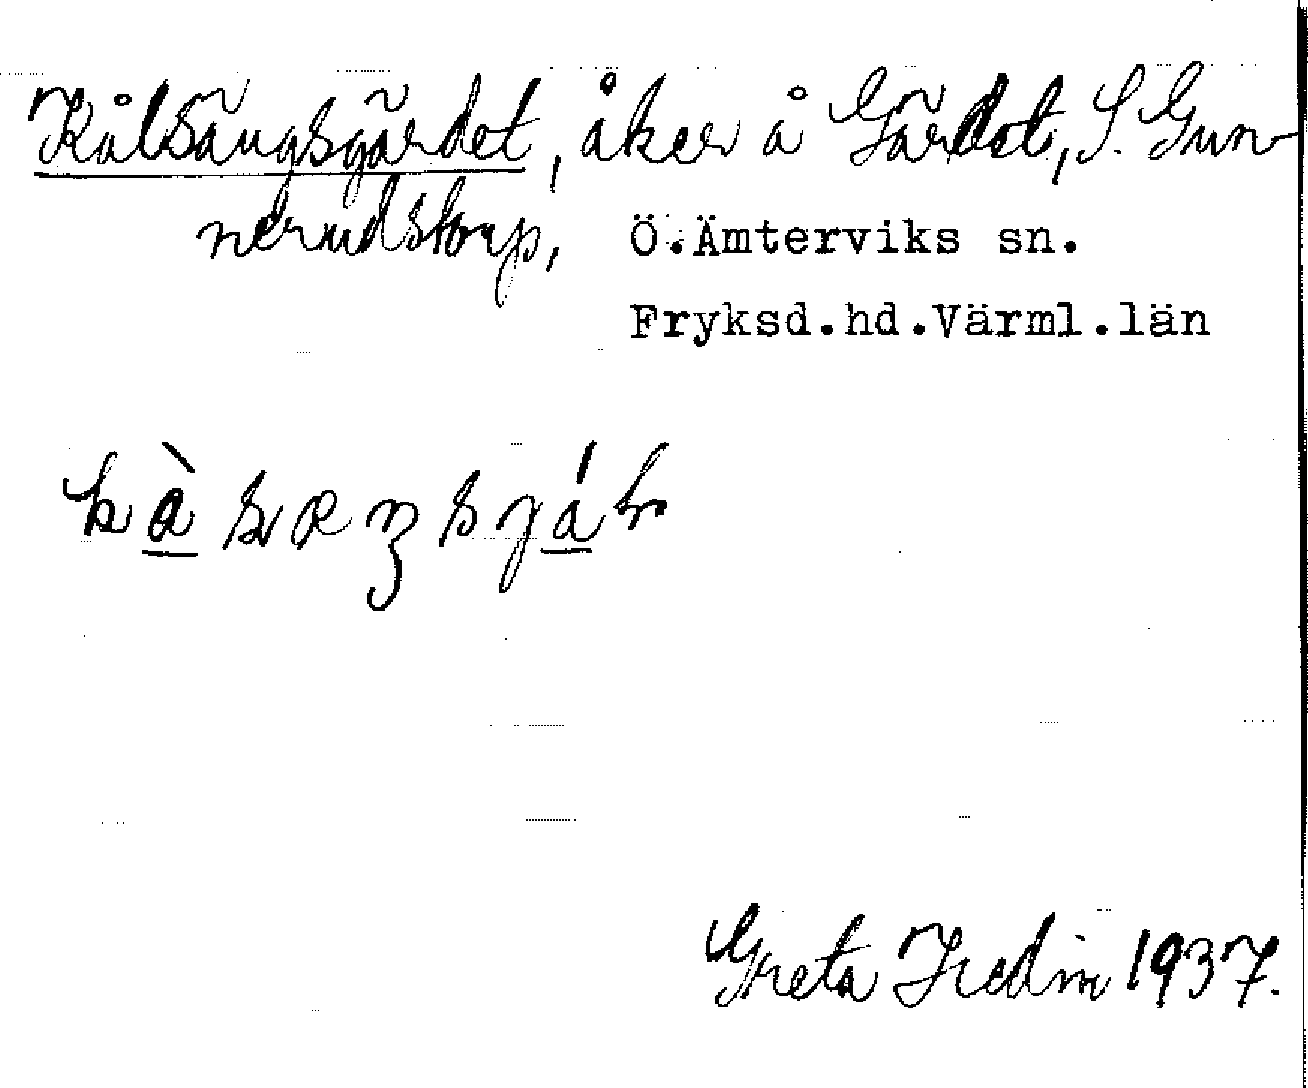 Kålsängsgärdet, åker å Gärdet, S. Gun-
nerudstorp, Ö.Ämterviks sn.
Fryksd.hd.Värml.län
Greta Hedin 1937.